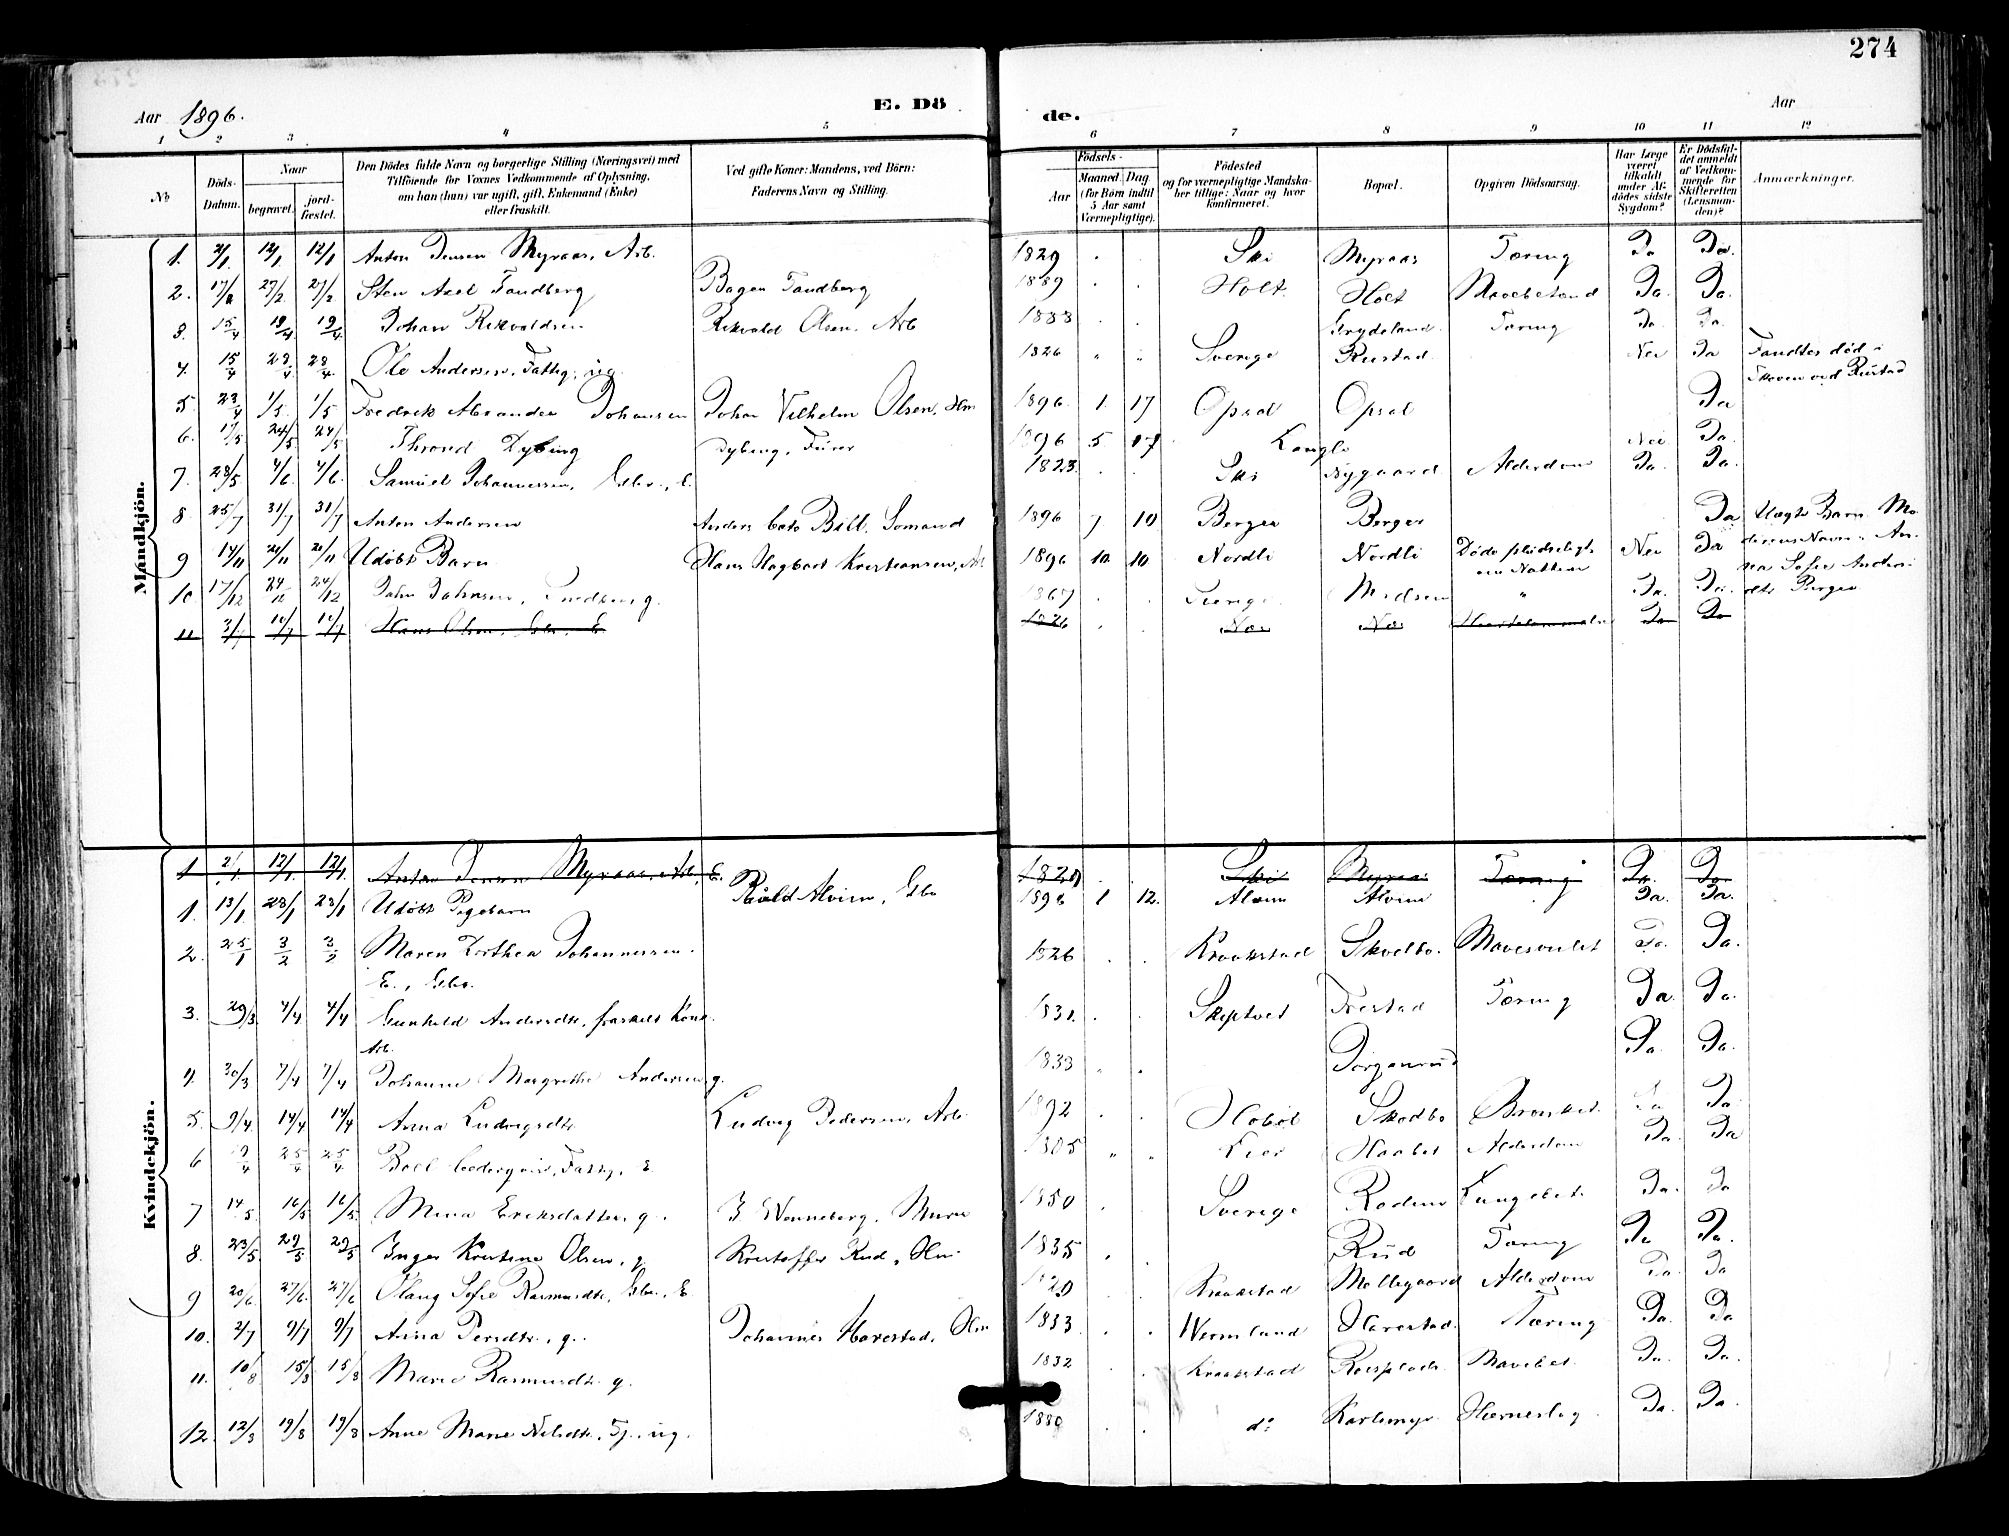 274
Aar 1896.
E. Dö
de.
Aar
1 2 3 4 5 6 7 8 9 10 11 12
No
Döds-Datum.
Naar
begravet.
jord-fæstet.
Den Dödes fulde Navn og borgerlige Stilling (Næringsvei) med
Tilföiende for Voxnes Vedkommende af Oplysning,
om han (hun) var ugift, gift, Enkemand (Enke)
eller fraskilt.
Ved gifte Koner: Mandens, ved Börn:
Faderens Navn og Stilling.
Födsels-
Aar
Maaned. Dag.
(for Börn indtil
5 Aar samt
Værnepligtige).
Födested
og for værnepligtige Mandska-
ber tillige: Naar og hvor
konfirmeret.
Bopæl.
Opgiven Dödsaarsag.
Har Læge
været
tilkaldt
under Af-
dödes sidste
Sygdom?
Er Dödsfal-
det anmeldt
af Vedkom-
mende for
Skifteretten
(Lensman-
den)?
Anmærkninger.
Mandkjön.
1. 2/1 12/1 12/1 Anton Jensen Myraas, Arb. 1829 Ski Myraas Tæring Ja Ja.
2. 27/2 27/2 Sten Axel Tandberg Tandberg 1889 Holt. Holt Ja. Ja.
3. 15/4 19/4 19/4 Johan Rikvoldsen Rikvold Olsen. Arb 1883 Tæring Ja. Ja.
4. 15/4 23/4 23/4 Ole Andersen, Fattig, ug. 1826 " " Sverige Rustad Nei Ja Fandtes död i
Skoven ved Rustad
5. 23/4 1/5. 1/5 Fredrik Alexander Johansen Johan Vilhelm Olsen, Hm 1896. 1. 17 Opsal Opsal Ja
6. 17/5 24/5 24/5 Thrond Dybing Dybing, Furer 1896 5 17 Langli Nei Ja.
7. 28/5 4/6. 4/6. Samuel Johannessen, Gbr., E. 1823. Ski Nygaard Alderdom Ja. Ja.
8 25/7 31/7 31/7 Anton Andersen Anders Bill. Somand 1896 7 10 Berger Berger Ja Uægte Barn. Mo
derens Navn: An-
na Sofie Anders
dtr Berger
9 14/11 20/11 20/11 Udöbt Barn Hans Hagbart Kristiansen, Arb 1896 10. 10 Nordli Nordli Döde pludseligt
om Natten Nei Ja
10 17/12 24/12 24/12 John Johnsen, g. 1867 Sverige Midsen " Ja. Ja
11 3/7 10/7 10/7 Hans Olsen, Gbr, E 1826 Næs Næs Ja Ja
Kvindekjön.
1 2/1. 12/1. 12/1. Anton Jensen Myraas, Arb, E. 1829 Ski Myraas Tæring Ja. Ja.
1. 13/1 23/1 23/1 Udöbt Pigebarn Alvim, Gbr 1896 1 12. Alvim Alvim Ja. Ja.
2. 25/1 3/2 3/2 Maren Dorthea Johannessen.
E., Gbr. 1826 Kraakstad Skodbo. Mavesvulst Ja. Ja.
3. 29/3 4/4 4/4 Gunhild Andersdtr, fraskilt Kone.
Arb. 1831. Skiptvet Frestad Tæring Ja. Ja.
4. 30/3 7/4 7/4 Johanne Margrethe Andersen, g. 1833 Jörgenrud Ja. Ja.
5. 9/4 14/4 14/4 Anna Ludvigsdtr Ludvig Pedersen, Arb 1892 Hobøl Skodbo Ja Ja.
6 25/4 25/4 Fattig, E 1805 " " Lier Haabet Alderdom Ja. Ja
7 14/5. 16/5 16/5. Mina Eriksdatter, g. J. Wenneberg, Murer 1850 Sverige Roden Lungebet. Ja. Ja
8. 23/5. 29/5 29/5 Inger Kristine Olsen, g Kristoffer Rud, Hm 1835 Rud Tæring Ja Ja.
9 20/6. 27/6. 27/6 Olaug Sofie Rasmusdtr, Gbr., E. 1820 Kraakstad Mollegaard Alderdom Ja. Ja
10. 2/7 9/7 9/7 Anna Persdtr., g. Johannes Harestad, Hm 1833 Wermland Harestad. Tæring Ja. Ja
11. 10/8 15/8 15/8 Marie Rasmusdtr g. 1832 Kraakstad Ja. Ja.
12. 12/8 19/8 19/8 Anne Marie Nilsdtr, Tj., ug. 1880 do Ja. Ja.